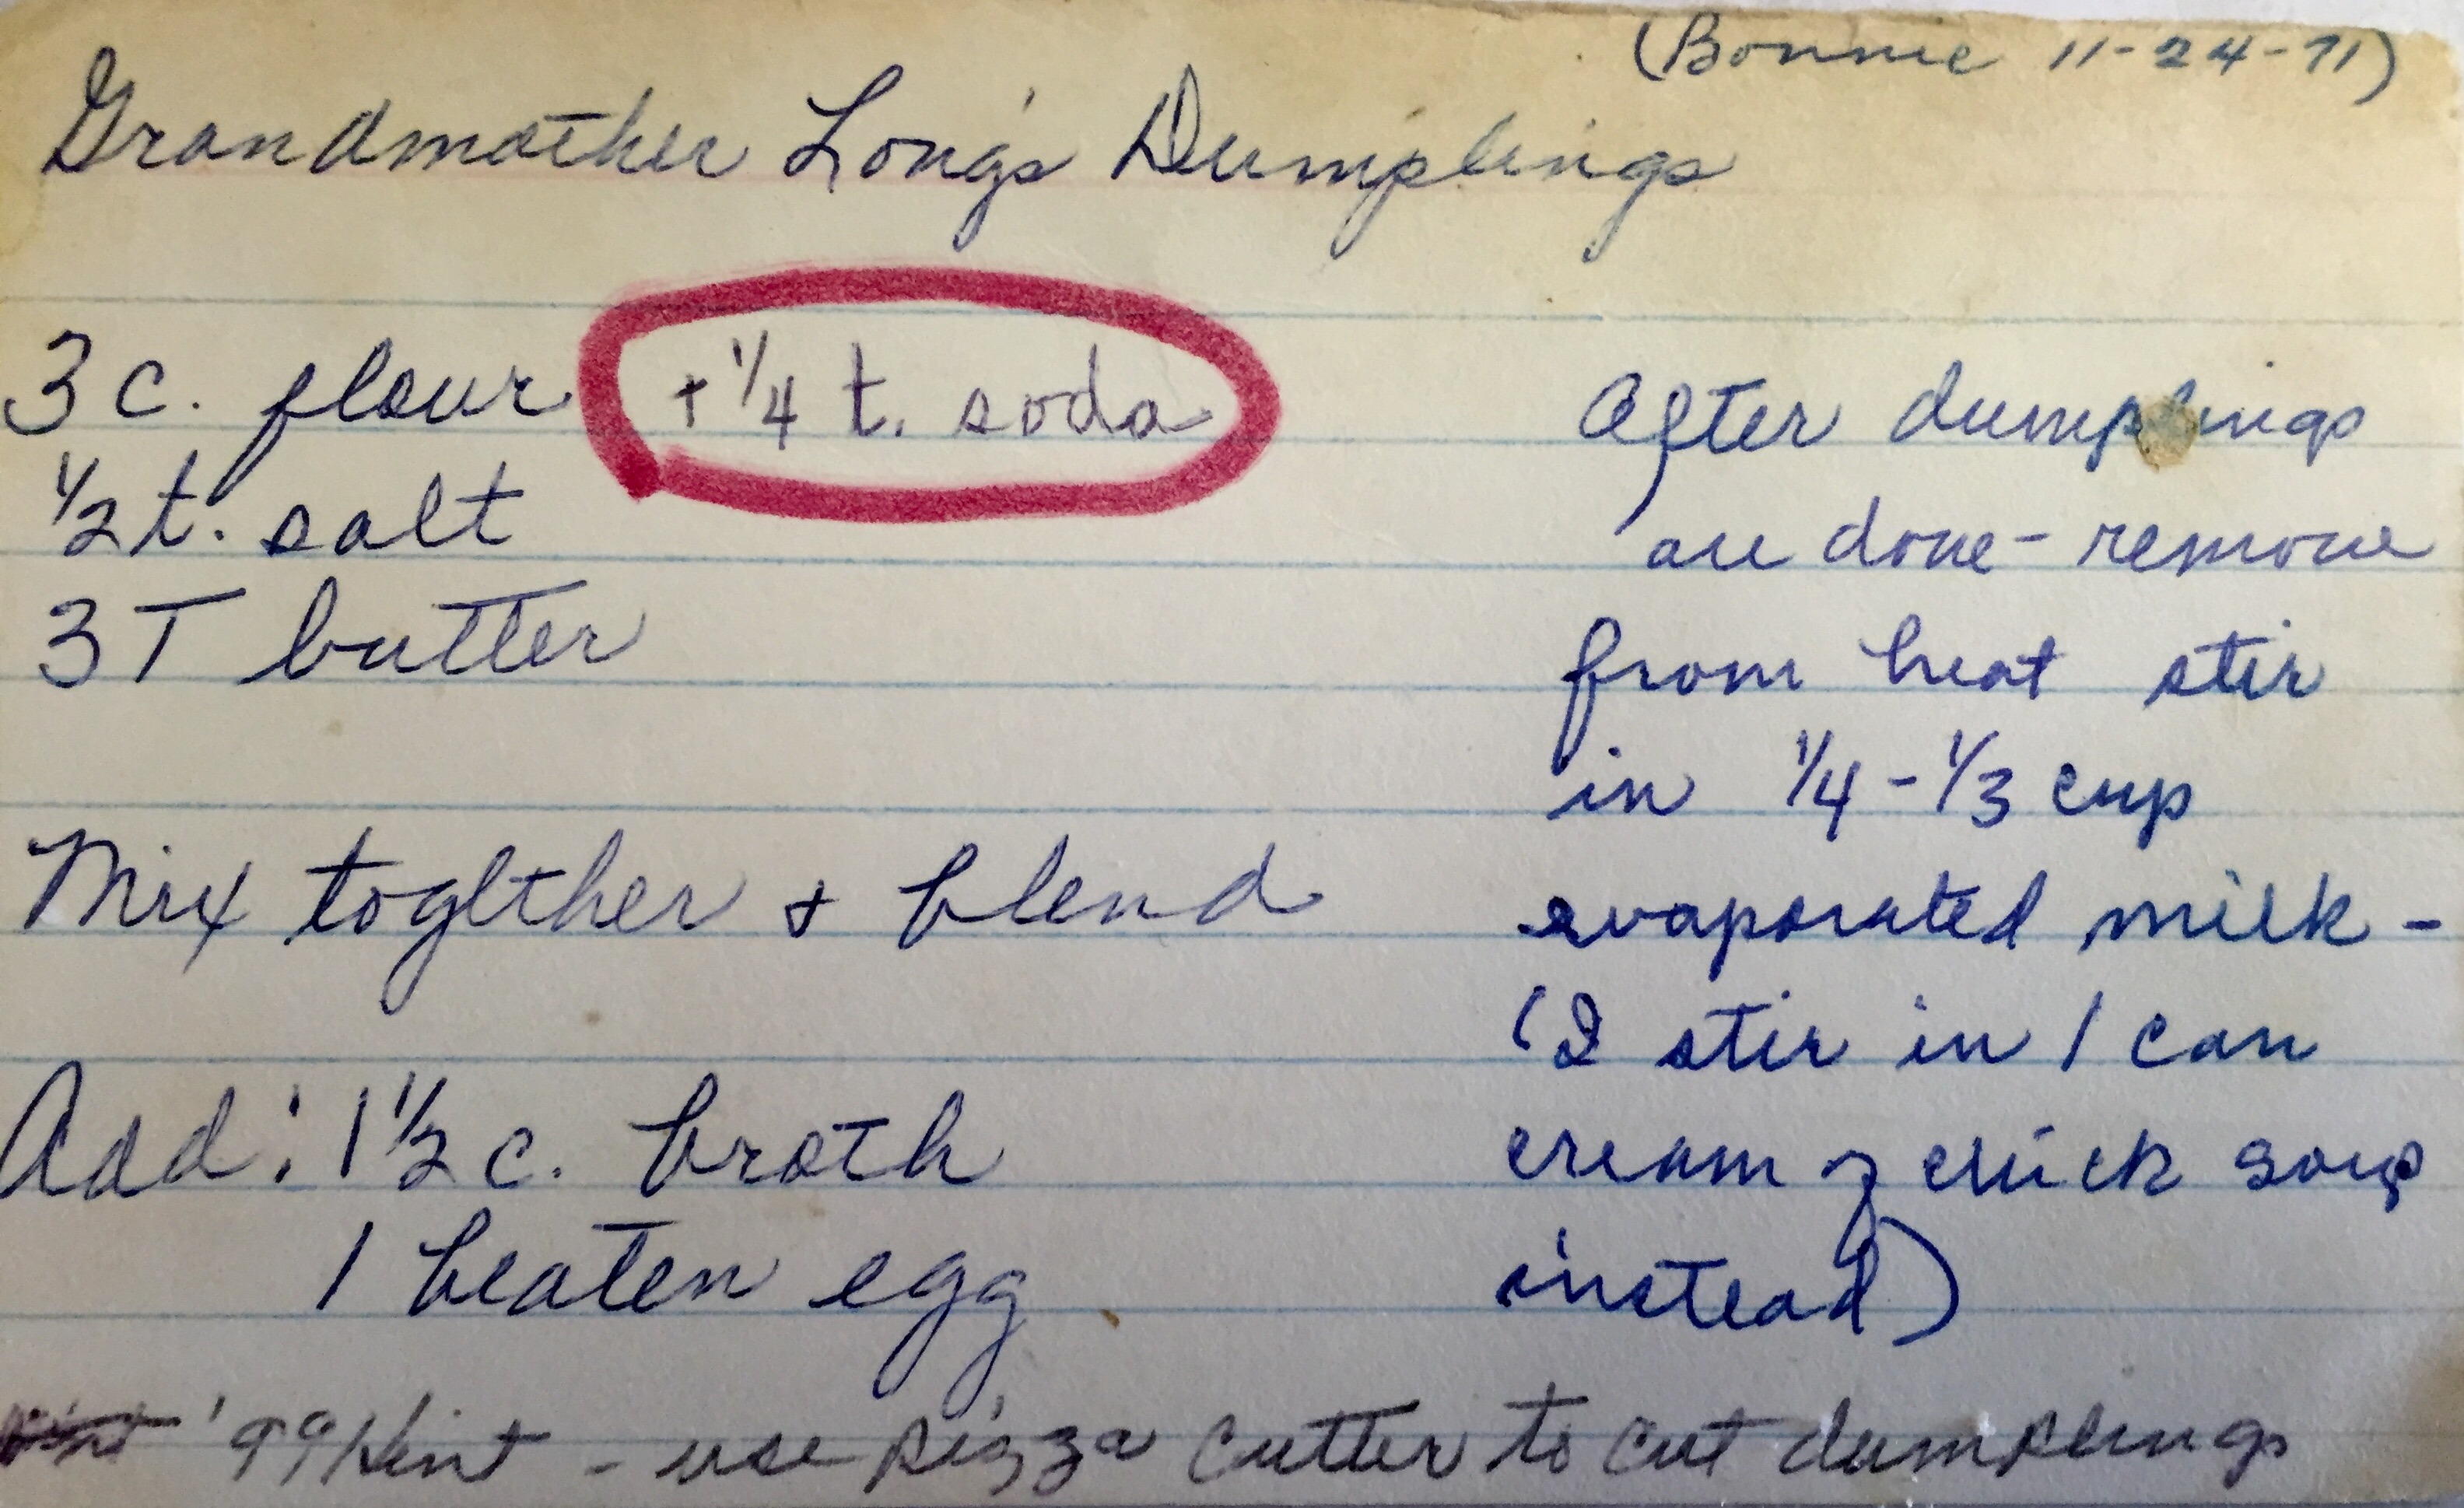 (Bonnie 11-24-71)
Grandmother Long's Dumplings
3 c. flour + 1/4 t. soda
1/2 t. salt
3 T butter
Mix together + blend
Add: 1 1/2 c. broth
1 beaten egg
After dumplings
are done - remove
from heat stir
in 1/4 - 1/3 cup
evaporated milk -
(I stir in 1 can
cream of chick soup
instead)
'99 Hint - use pizza cutter to cut dumplings